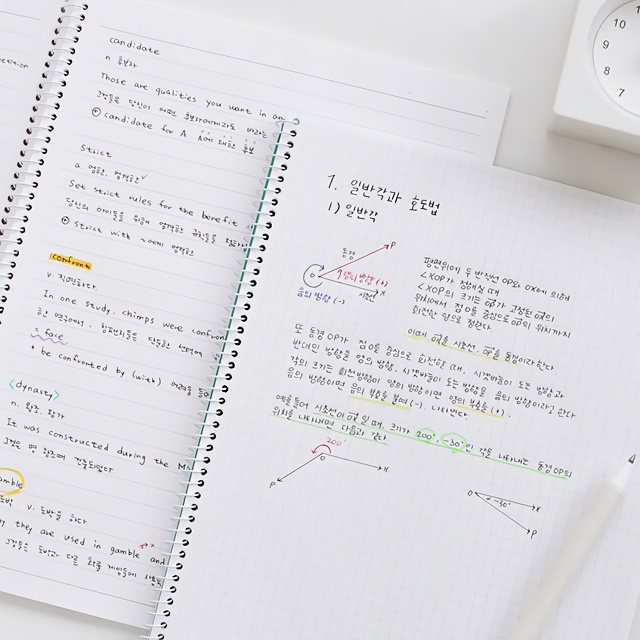 candidate
n 후보자
Those are qualities you want in an
candidate for A A에 대한 후보
Strict
a 엄한, 엄격한
See strict rules for the benefit
strict with ~에게 엄격한
confront
v. 직면하다
In one study, chimps were confron
face
be confronted by (with)
<dynasty>
n. 왕조, 왕가
It was constructed during the M
그것은 명 왕조에 건축되었다
amble
v. 도박을 하다
they are used in gamble and
1. 일반각과 호도법
1) 일반각
동경
P
양의 방향 (+)
O
시초선
X
음의 방향 (-)
평면위에 두 반직선 OP와 OX에 의해
∠XOP가 정해질 때
∠XOP의 크기는 OP가 고정된 OX의
위치에서 점 O를 중심으로 OP의 위치까지
회전한 양으로 정한다.
이때 OX를 시초선, OP를 동경이라 한다
또 동경 OP가 점 O를 중심으로 회전할 때, 시곗바늘이 도는 방향과
반대인 방향을 양의 방향, 시곗바늘이 도는 방향을 음의 방향이라고 한다
각의 크기는 회전방향이 양의 방향이면 양의 부호(+),
음의 방향이면 음의 부호를 붙여(-), 나타낸다
예를들어 시초선이 OX일 때, 크기가 200° -30°인 각을 나타내는 동경 OP의
위치를 나타내면 다음과 같다
200°
O
X
P
O
-30°
X
P
10
9
8
7